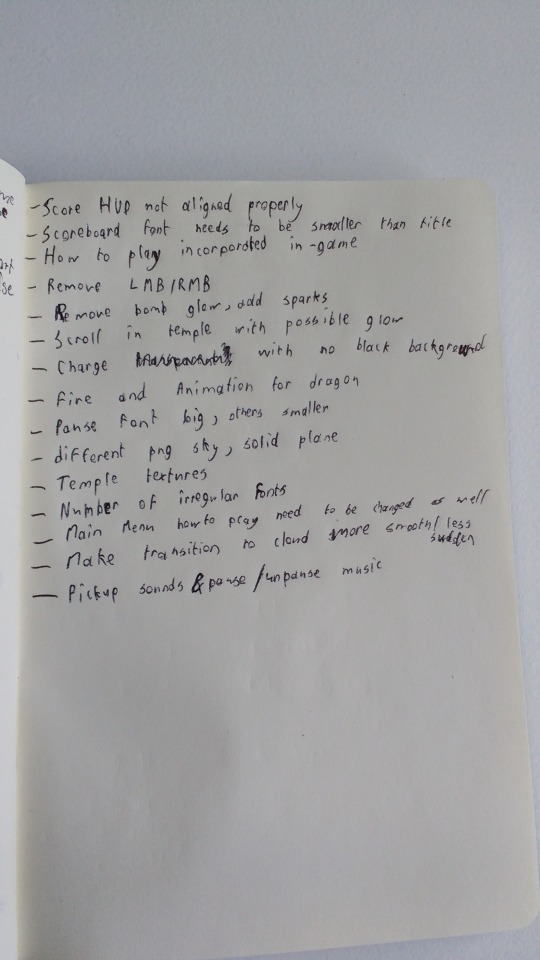 me
- Score HUD not aligned properly
- Scoreboard font needs to be smaller than title
- How to play incorporated in-game
- Remove LMB/RMB
- Remove bomb glow, add sparks
- Scroll in temple with possible glow
- Charge with no black background
- Fire and Animation for dragon
- Pause font big, others smaller
- different png sky, solid plane
- Temple textures
- Number of irregular fonts
- Main Menu how to play need to be changed as well
- Make transition to cloud more smooth/less
sudden
- Pickup sounds & pause/unpause music